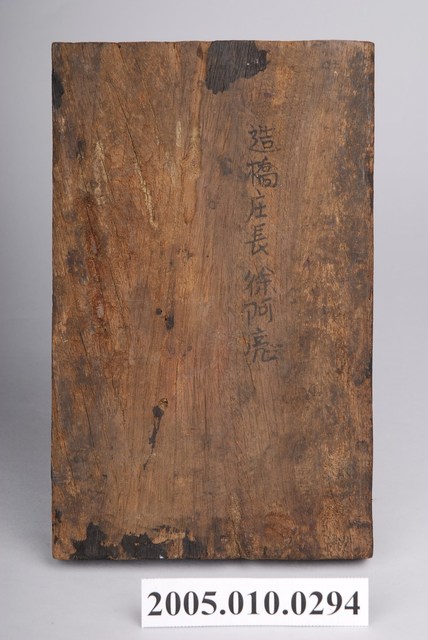 造橋庄長 徐阿亮
2005.010.0294